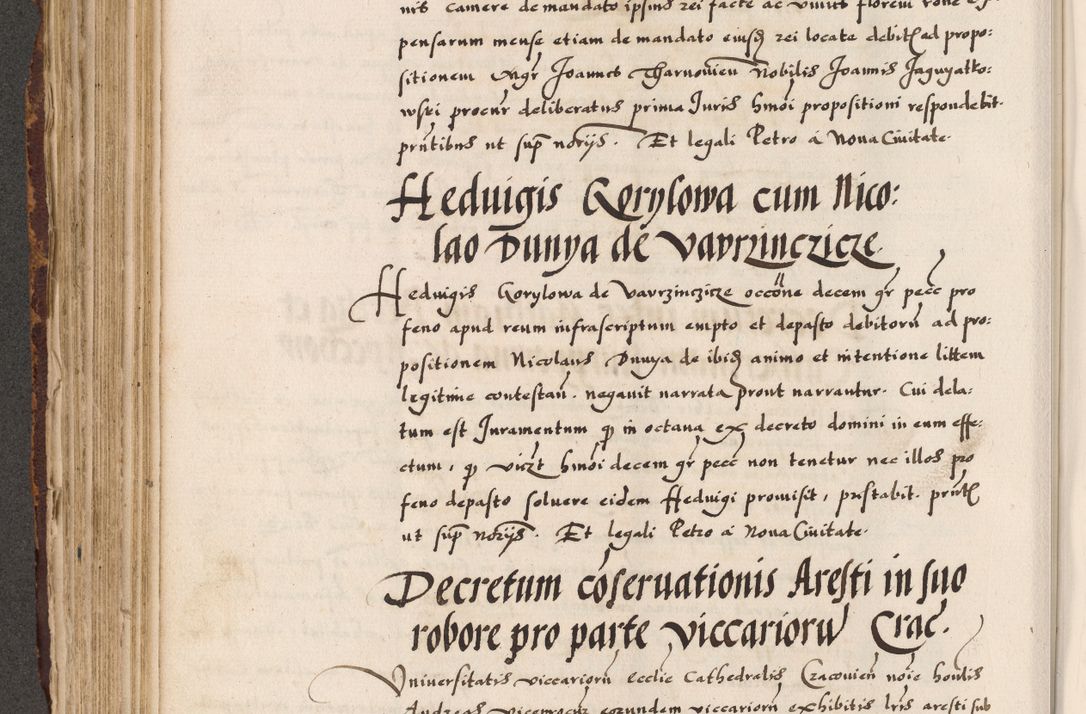 nis Camere de mandato ipsius rei facte ac
pensarum mense etiam de mandato eiusdẽ rei locate debitẽ ad propo:
sitionem Mgr Joannes Tharnovieñ Nobilis Joannis Jaguyatko:
wski procur̃ deliberatus prima Juris hmõi propositioni respondebit.
pñtibus ut supᵃ noriis. Et legali Petro à Nova Civitate.
Heduigis Korylowa cum Nico:
lao Dunya de Vavrzinczicze
Heduigis Korylowa de Vavrzinczicze occõne decem gr̃ pecc̃ pro
feno apud reum infrascriptum empto et depasto debitorũ ad pro:
positionem Nicolaus Dunya de ibidẽ animo et intentione littem
legitime contestañ. negavit narrata prout narrantur. Cui dela:
tum est Juramentum qꝫ in octava ex decreto domini in eum effe:
ctum, qꝫ vizt hmõi decem gr̃ pecc̃ non tenetur nec illos pro
feno depasto solvere eidem Heduigi promisit, prestabit. pñtẽ
ut supᵃ noriis. Et legali Petro à Nova Civitate.
Decretum cõservationis Aresti in suo
robore pro parte viccariorũ Crac̃.
Universitatis viccariorũ Ecclie Cathedralis Cracovieñ noĩe honlis
Andreas Viceprocur̃ eorundem viccariorũ exhibitis lr̃is aresti sub